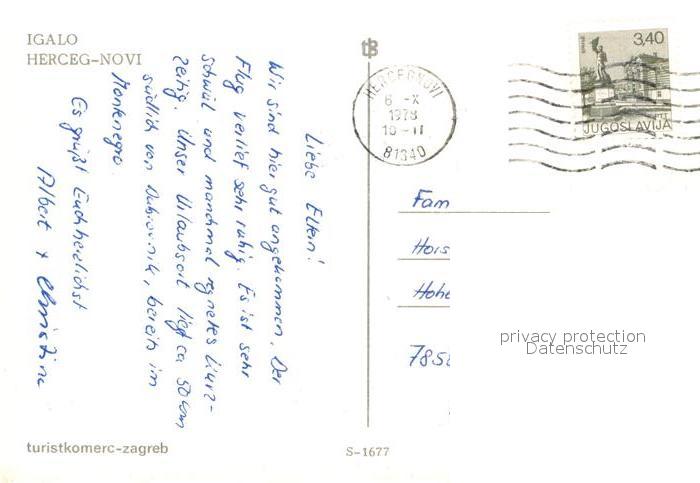 IGALO
HERCEG-NOVI
Liebe Eltern!
Wir sind hier gut angekommen. Der
Flug verlief sehr ruhig. Es ist sehr
schwül und manchmal regnet es kurz-
zeitig. Unser Urlaubsort liegt ca 50 km
südlich von Dubrovnik, bereits im
Montenegro.
Es grüßt Euch herzlichst
Albert + Christine
turistkomerc-zagreb
S-1677
HERCEGNOVI
6 -X
1978
10-11
81340
3,40
JUGOSLAVIJA
Fam
Hors
Hohe
785
privacy protection
Datenschutz